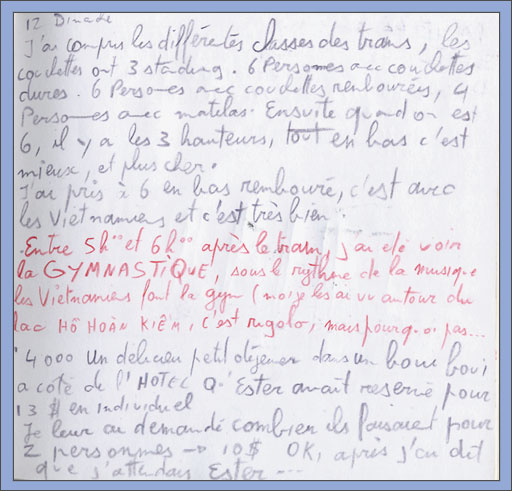 12 Dinade
J'ai compris les différentes classes des trains, les
couchettes ont 3 standing. 6 Personnes avec couchettes
dures. 6 Personnes avec couchettes rembourées, 4
Personnes avec matelas. Ensuite quand on est
6, il y a les 3 hauteurs, tout en bas c'est
mieux, et plus cher.
J'ai pris à 6 en bas rembouré, c'est avec
les Vietnamiens et c'est très bien.
Entre 5h00 et 6h00 après le train, j'ai été voir
la GYMNASTIQUE, sous le rythme de la musique
les Vietnamiens font la gym (moi je les ai vu autour du
lac HÔ HOÀN KIÊM, c'est rigolo, mais pourquoi pas...
4 000 Un délicieu petit déjeuner dans un boui boui
a coté de l'HOTEL Q' Ester avait reservé pour
13 $ en individuel
Je leur ai demandé combien ils faisaient pour
2 personnes → 10 $ OK, après j'ai dit
que j'attendais Ester ...